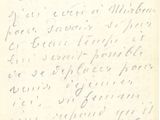 J'ai écrit à Mirbeau
pour savoir si par
ce beau temps il
lui serait possible
de se déplacer pour
venir déjeuner
ici, sa femme
me répond qu'il